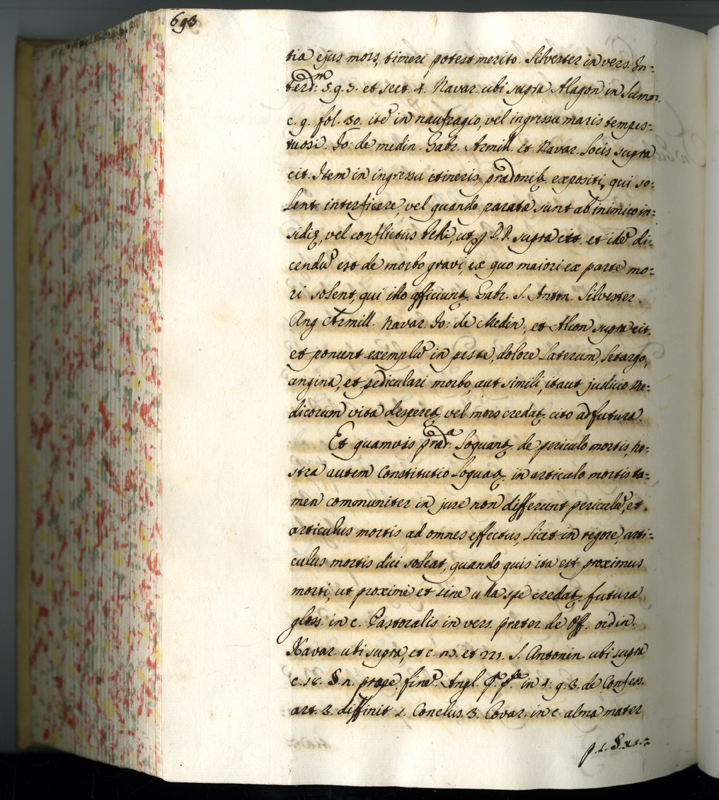 693
tia ejus mors timeri potest merito. Silvester in vers. In-
terd.m 5. q. 5. et sect. 4. Navar. ubi supra Alagon in Sum.
c. 9. fol. 30. ite in naufragio, vel ingressu maris tempes-
tuosi. Jo. de medin. Gabr. Armill. et Navar. locis supra
cit. Item in ingressu itineris, prædoniq expositi, qui so-
lent interficere, vel quando paratæ sunt ab inimico in-
sidiæ, vel conflictus belli, ut supra citt. et ide di-
cendu est de morbo gravi ex quo maiori ex parte mo-
ri solent, qui illo afficiunt. Gabr. S. Anton. Silvester.
Ang. Armill. Navar. Jo. de Medin, et Alcon supra cit.
et ponunt exemplu in peste, dolore laterum, letargo,
angina, et pediculari morbo, aut simili, itaut judicio Me-
dicorum vita desperet, vel mors credat cito adfutura.
Et quamvis præd.a loquant de periculo mortis, no-
stra autem Constitutio loquat in articulo mortis ta-
men communiter in jure non differunt periculu, et
articulus mortis ad omnes effectus, licet in rigore arti-
culus mortis dici soleat, quando quis ita est proximus
morti, ut proxime et sine ulla spe credat futura
glos. in c. Pastoralis in vers. præter de Off. ordin.
Navar. ubi supra, et c. n. et 221. S. Antonin. ubi supra
c. 18. §. n. prope fine. Angl. in 4. q. 3. de Confess.
art. 3. diffinit 1. Conclus. 3. Covar. in c. alma mater
p. 1. §. 11. 2